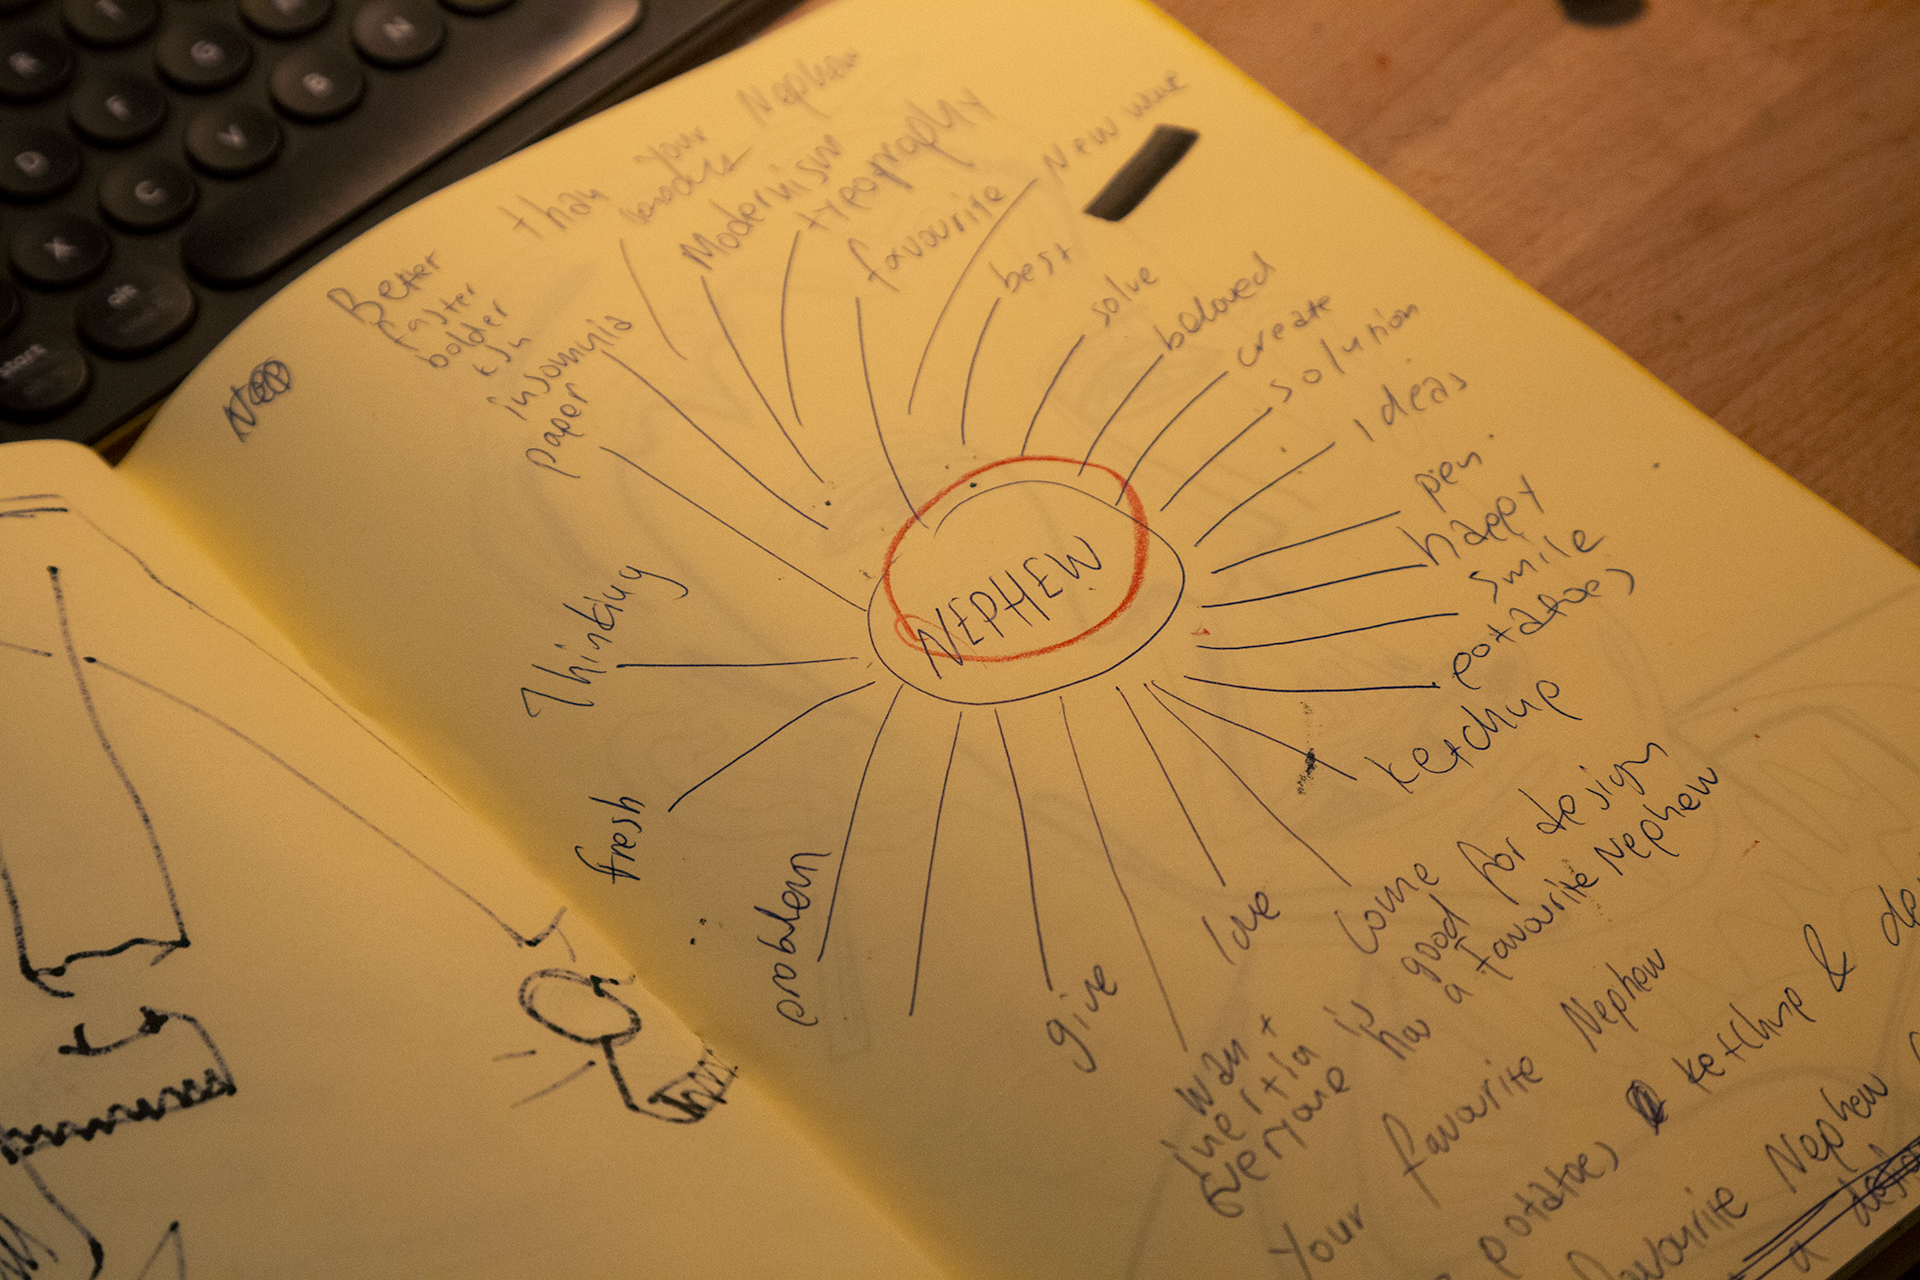 Nephew
than your
Modernism
typography
favourite
New wave
best
solve
beloved
create
solution
ideas
pen
happy
smile
potatoes
ketchup
Better
faster
bolder
insomnia
paper
NEPHEW
Thinking
fresh
problem
give
love
come
want
inertia is good for design
everyone has a favourite Nephew
Your favourite Nephew
potatoes ketchup &
favourite Nephew
a
K
G
B
N
F
V
D
C
X
alt
start